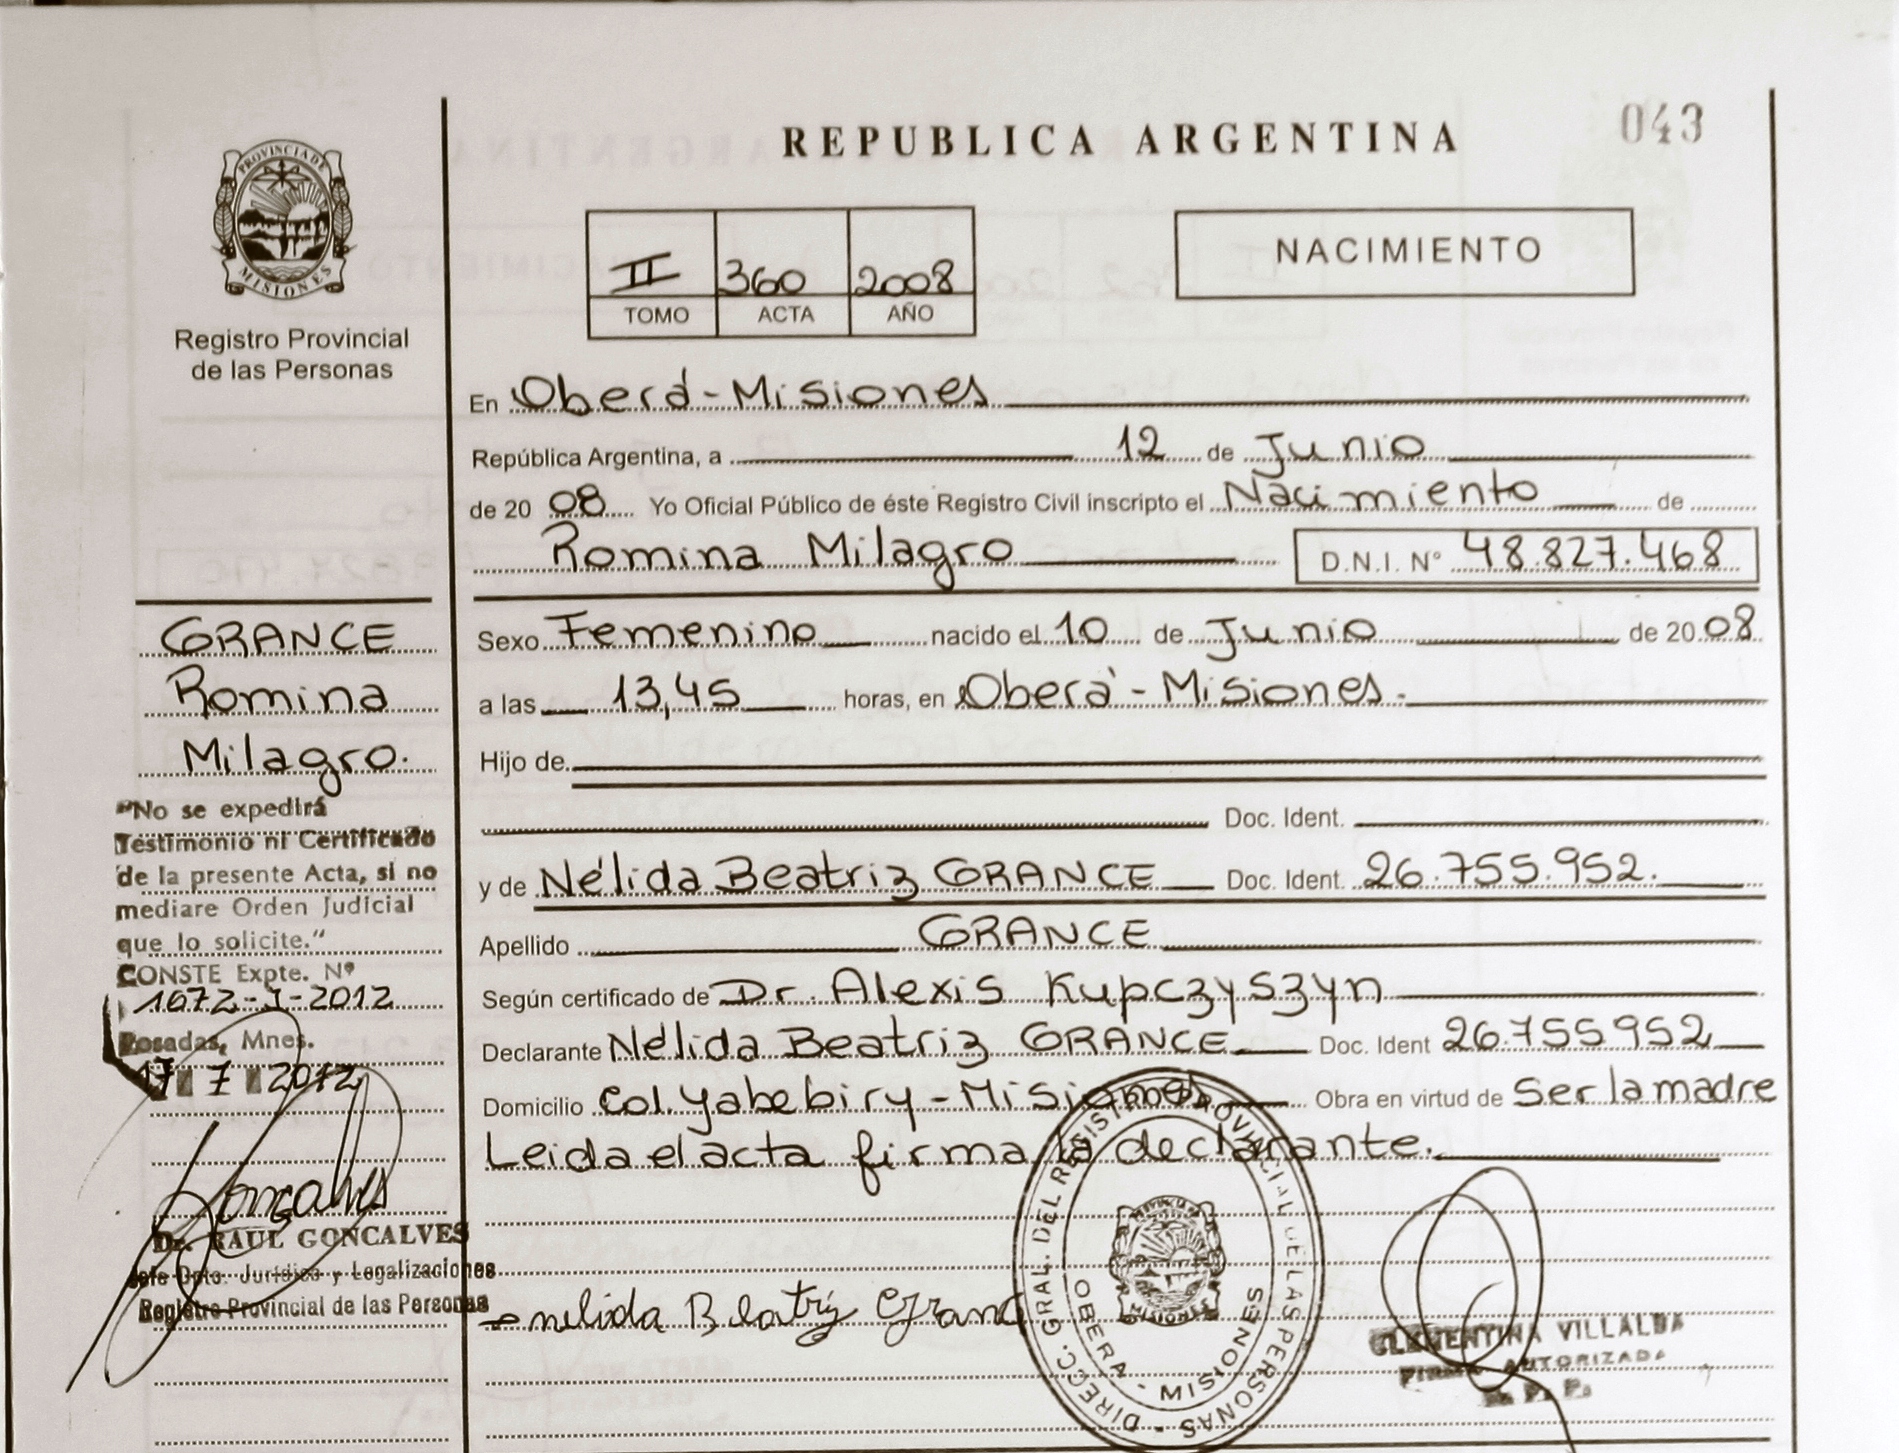 REPUBLICA ARGENTINA
043
PROVINCIA DE
MISIONES
Registro Provincial
de las Personas
II 360 2008
TOMO ACTA AÑO
NACIMIENTO
En Oberá - Misiones
República Argentina, a 12 de Junio
de 20 08 Yo Oficial Público de éste Registro Civil inscripto el Nacimiento de
Romina Milagro D.N.I. N° 48.827.468
GRANCE
Romina
Milagro.
Sexo Femenino nacido el 10 de Junio de 20 08
a las 13,45 horas, en Oberá - Misiones.
Hijo de
Doc. Ident.
y de Nélida Beatriz GRANCE Doc. Ident. 26.755.952.
Apellido GRANCE
Según certificado de Dr. Alexis Kupczyszyn
Declarante Nélida Beatriz GRANCE Doc. Ident 26.755952
Domicilio Col. Yabebiry - Misiones, Obra en virtud de Ser la madre
Leida el acta firma la declarante.
"No se expedirá
Testimonio ni Certificado
de la presente Acta, si no
mediare Orden Judicial
que lo solicite."
CONSTE Expte. Nº
1672-J-2012
Posadas, Mnes.
17 7 2012
Goncalves
Dr. RAUL GONCALVES
Jefe Dpto. Jurídico y Legalizaciones
Registro Provincial de las Personas
nelida Beatriz Granc
DIRECC. GRAL. DEL REGISTRO PROVINCIAL DE LAS PERSONAS
OBERA - MISIONES
MISIONES
CLEMENTINA VILLALBA
FIRMA AUTORIZADA
R. P. P.